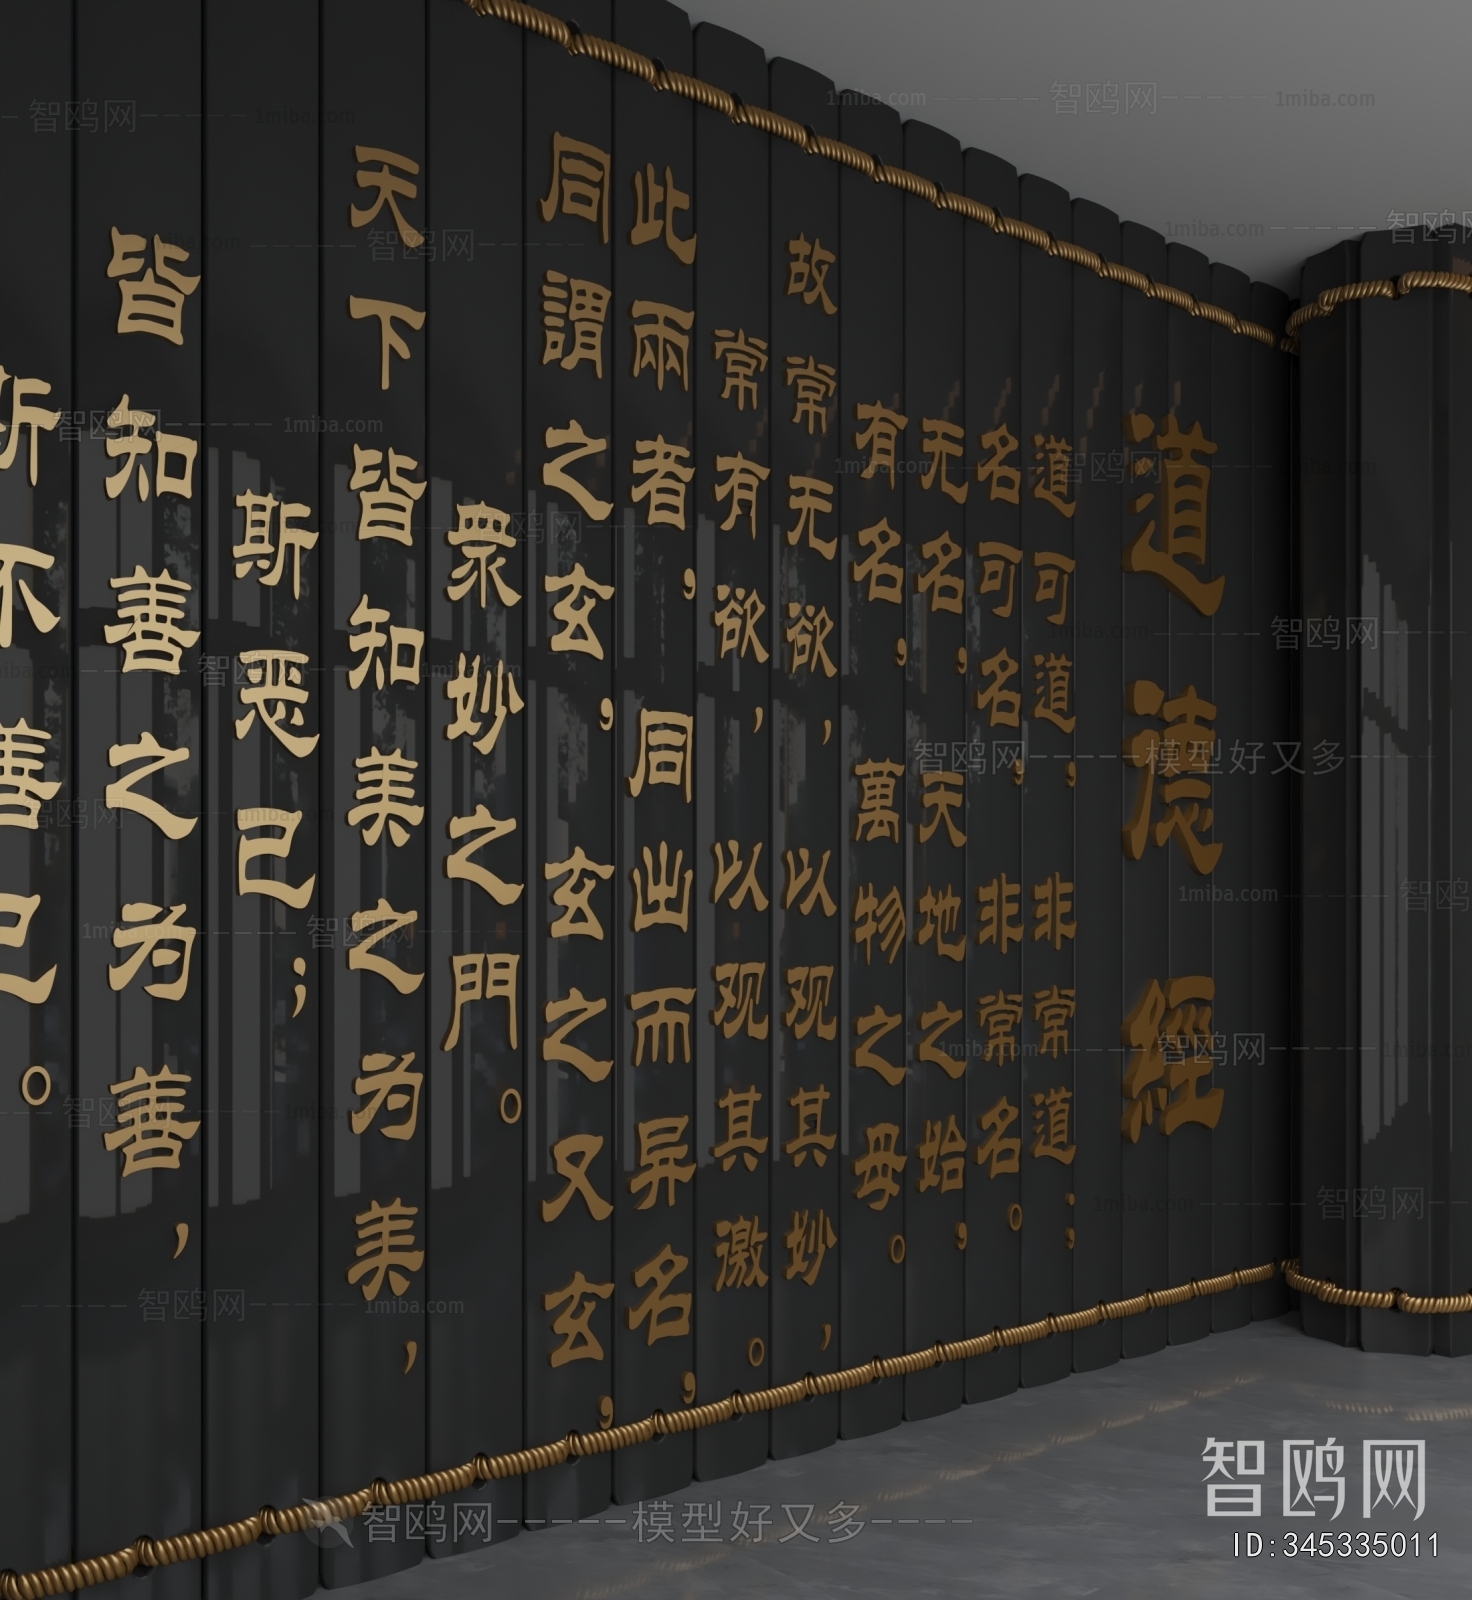 道德經
道可道，非常道；
名可名，非常名。
无名，天地之始，
有名，萬物之母。
故常无欲，以观其妙，
常有欲，以观其激。
此兩者，同出而异名，
同謂之玄，玄之又玄，
衆妙之門。
天下皆知美之为美，
斯恶已；
皆知善之为善，
斯不善已。
智鸥网
ID:345335011
智鸥网-----模型好又多----
1miba.com